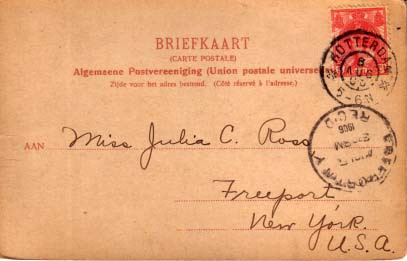 BRIEFKAART
(CARTE POSTALE)
Algemeene Postvereeniging (Union postale universe
Zijde voor het adres bestemd. (Côté réservé à l'adresse.)
ROTTERDAM
8
AUG
5-6N
REC'D
1906
AAN Miss Julia C. Ross
Freeport
New York.
U.S.A.